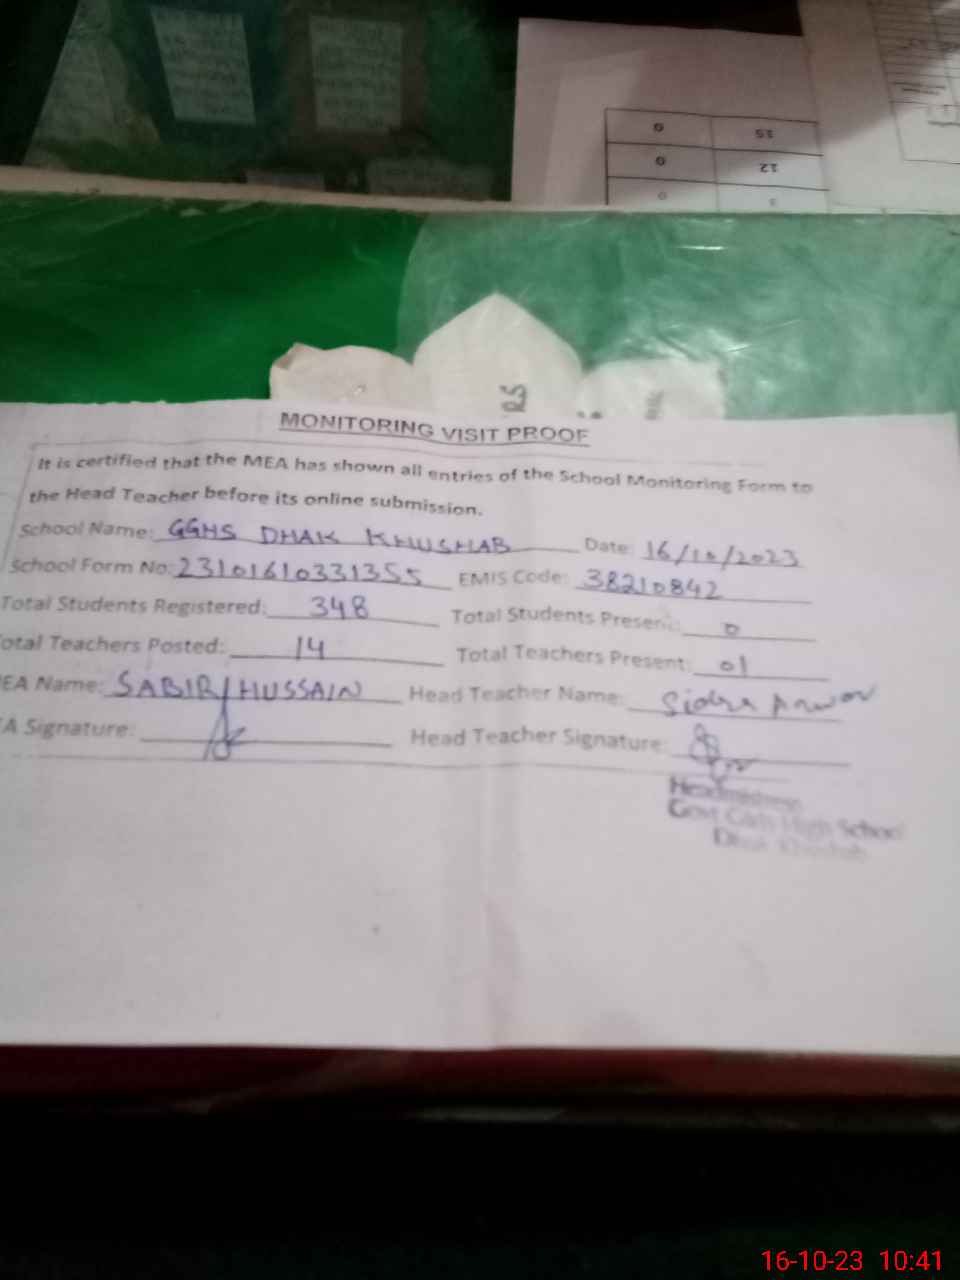 0 15
0 12
MONITORING VISIT PROOF
It is certified that the MEA has shown all entries of the School Monitoring Form to
the Head Teacher before its online submission.
School Name: GGHS DHAK KHUSHAB Date: 16/10/2023
School Form No: 23101610331355 EMIS Code: 38210842
Total Students Registered: 348 Total Students Present: 0
Total Teachers Posted: 14 Total Teachers Present: 01
EA Name: SABIR HUSSAIN Head Teacher Name: Sidra
A Signature: Head Teacher Signature:
Headmistress
Govt Girls High School
Dhak Khushab
16-10-23 10:41